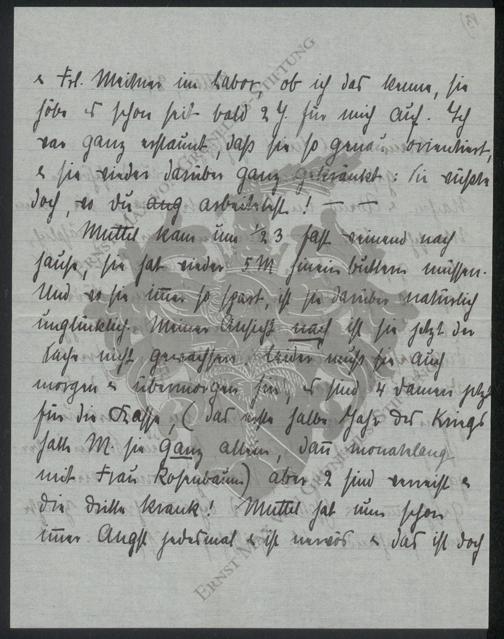 13)
& Frl. Meitner im Labor, ob ich das kenne, sie
höbe es schon seit bald 2 J. für mich auf. Ich
war ganz erstaunt, daß sie so genau orientiert,
& sie wieder darüber ganz gekränkt: Sie wüßte
doch, wo Du arbeitetest! — —
Muttel kam um ½ 3 fast weinend nach
hause, sie hat wieder 5 M hinein buttern müssen.
Und wo sie immer so spart, ist sie darüber natürlich
unglücklich. Meiner Ansicht nach ist sie jetzt der
Sache nicht gewachsen. Leider muß sie auch
morgen & übermorgen hin, es sind 4 Damen jetzt
für die Kasse, (das erste halbe Jahr des Kriegs
hatte M sie ganz allein, dann monatelang
mit Frau Rosenbaum) aber 2 sind verreist &
die dritte krank! Muttel hat nun schon
immer Angst jedesmal & ist nervös & das ist doch
ERNST MAX VON GRUNELIUS-STIFTUNG
ERNST MAX VON GRUNELIUS-STIFTUNG